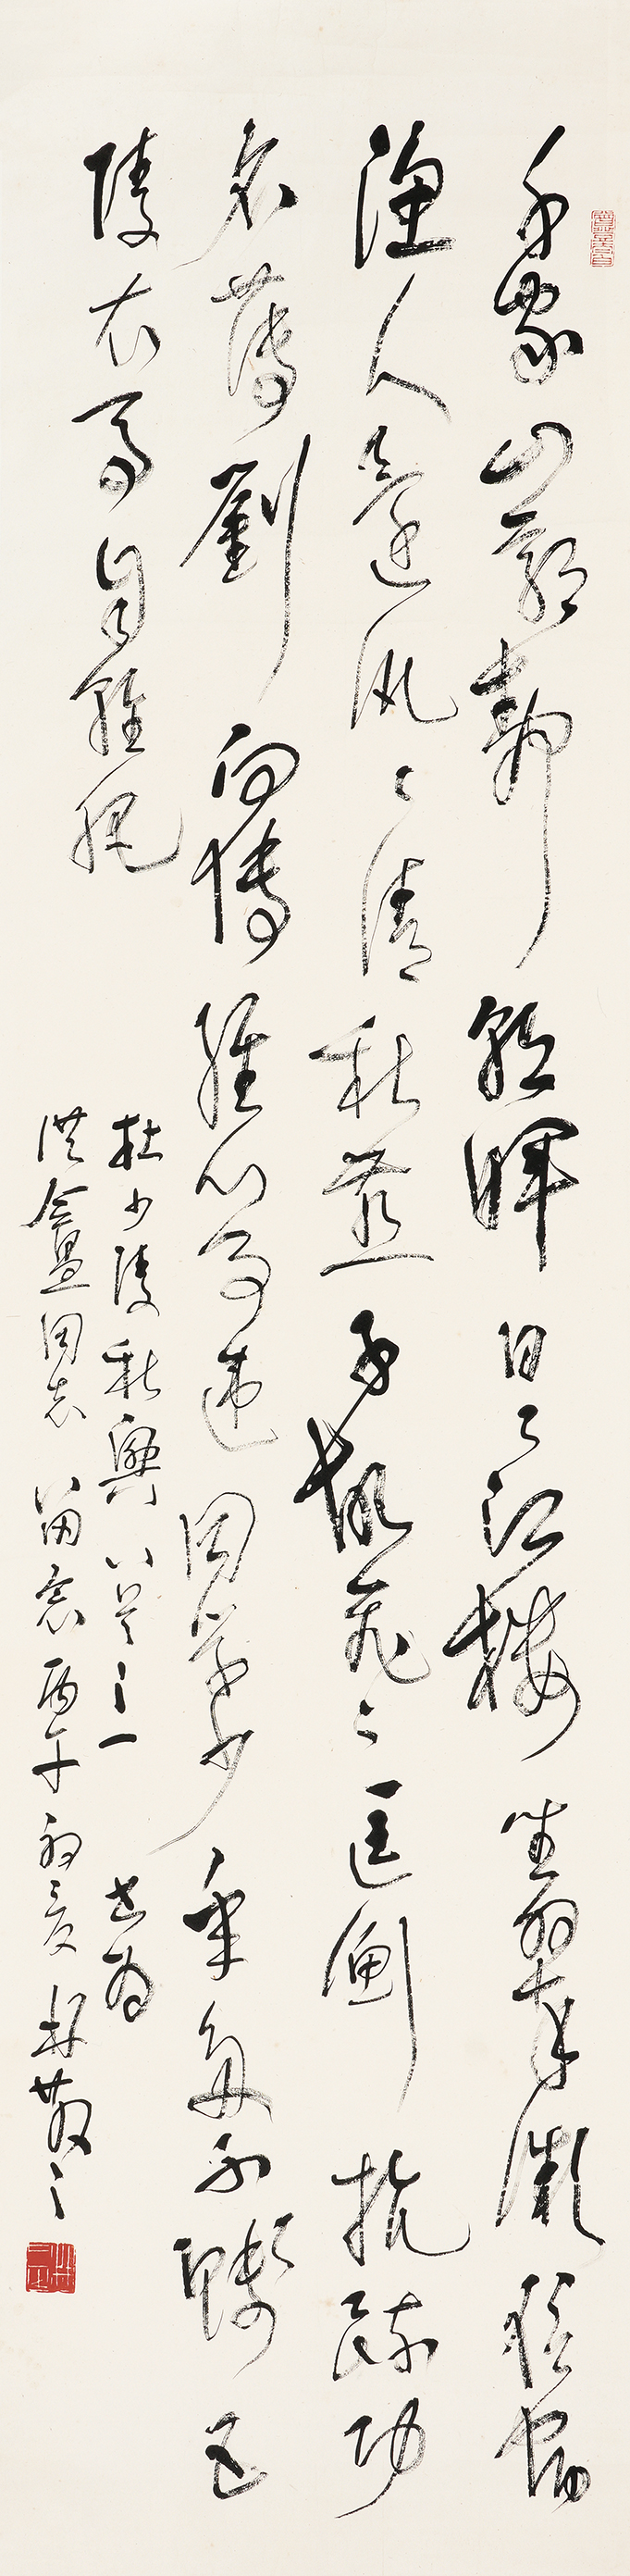 千家山郭靜朝暉日〻江樓坐翠微信宿
漁人還汎〻清秋燕子故飛〻匡衡抗疏功
名薄劉向傳經心事違同學少年多不賤五
陵衣馬自輕肥
杜少陵秋興八首之一 書為
洪盦同志留念丙午初夏林散之